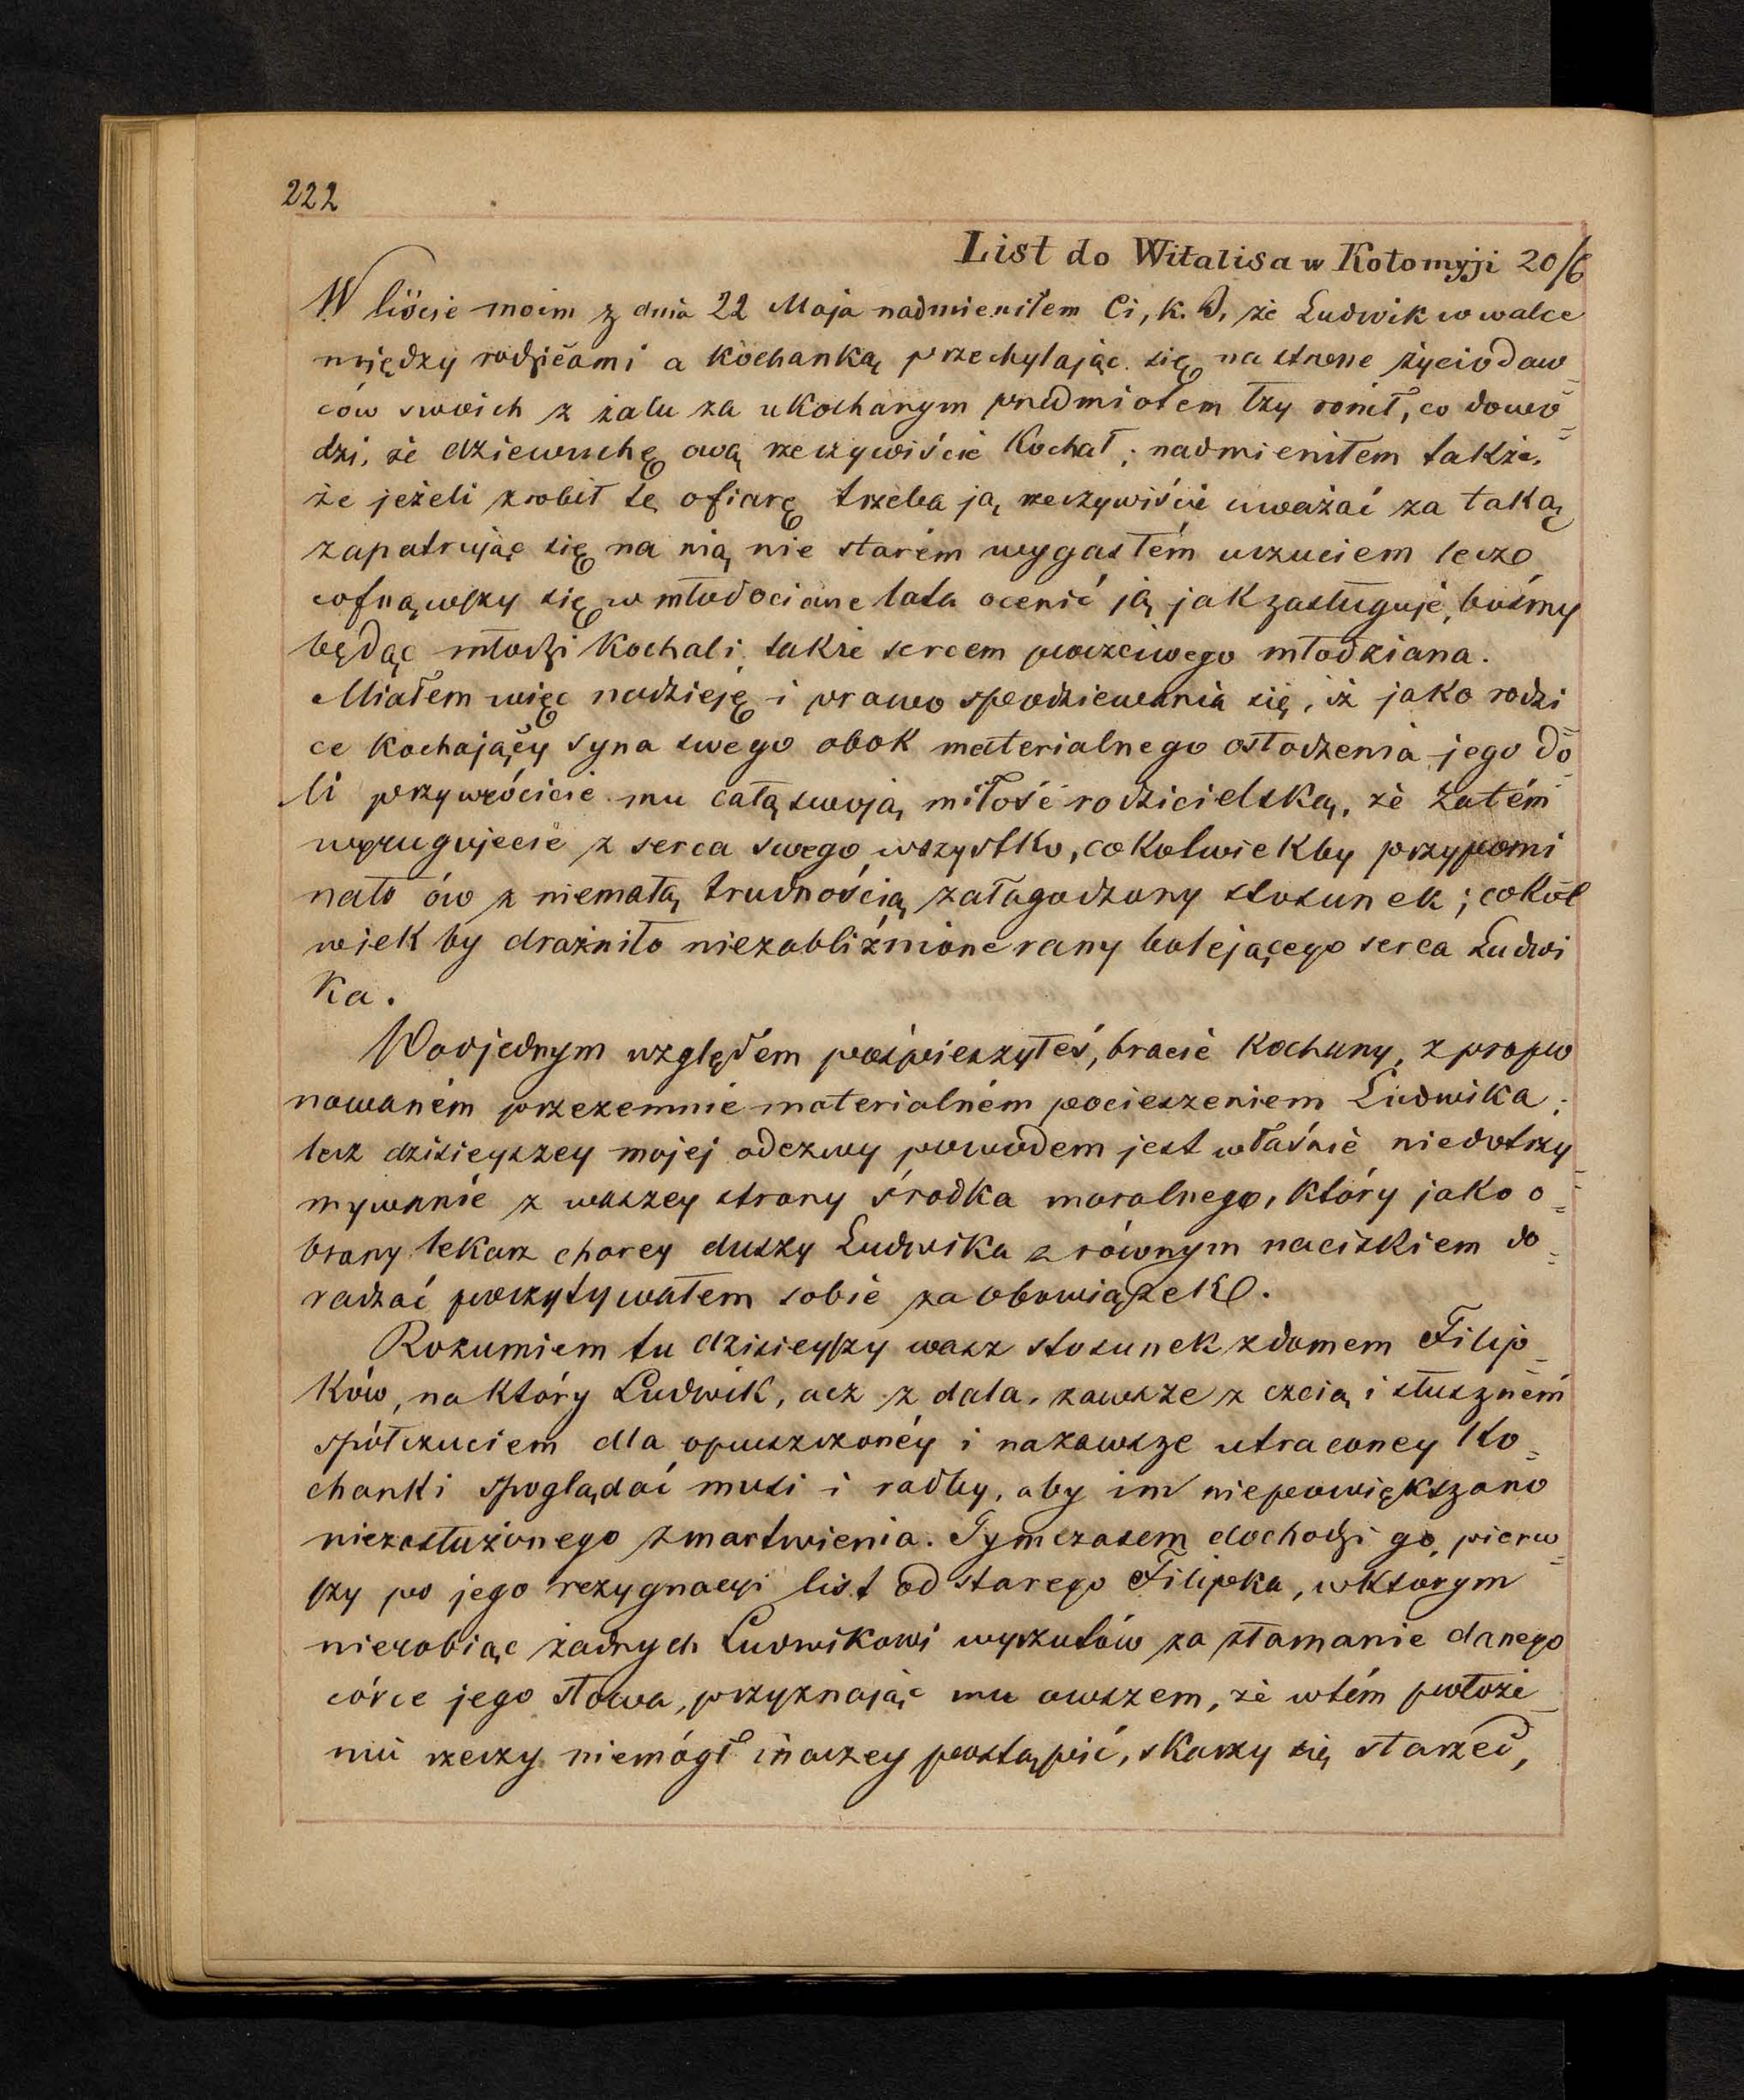 222
List do Witalisa w Kołomyji 20/6
W liście moim z dnia 22 Maja nadmieniłem Ci, K. B. że Ludwik w walce
między rodzicami a kochanką przechylając się na stronę życiodaw=
ców swoich z żalu za ukochanym przedmiotem łzy ronił, co dowo=
dzi, że dziewuchę ową rzeczywiście kochał; nadmieniłem także,
że jeżeli zrobił tę ofiarę trzeba ją rzeczywiście uważać za taką
zapatrując się na nią nie starém wygasłém uczuciem lecz
cofnąwszy się w młodociane lata ocenić ją jak zasługuje, bośmy
będąc młodzi kochali także sercem poczciwego młodziana.
Miałem więc nadzieję i prawo spodziewania się, iż jako rodzi
ce kochający syna swego obok materialnego osłodzenia jego do=
li przywrócicie mu całą swoją miłość rodzicielską, że zatém
wyrugujecie z serca swego wszystko, cokolwiekby przypomi
nało ów z niemałą trudnością załagodzony stosunek; cokol
wiek by drażniło niezabliźnione rany bolejącego serca Ludwi
ka.
Pod jednym względem pośpieszyłeś, bracie kochany, z propo
nowaném przezemnie materialném pocieszeniem Ludwika;
lecz dzisieyszey mojej odezwy powodem jest właśnie niedotrzy=
mywanie z waszey strony środka moralnego, który jako o=
brany lekarz chorey duszy Ludwika z równym naciskiem do=
radzać poczytywałem sobie za obowiązek.
Rozumiem tu dzisieyszy wasz stosunek z domem Filip_
ków, na który Ludwik, acz z dala, zawsze z czcią i słuszném
spółczuciem dla opuszczonéy i nazawsze utraconey ko=
chanki spoglądać musi i radby, aby im niepowiększano
niezasłużonego zmartwienia. Tymczasem dochodzi go pierw=
szy po jego rezygnacyi list od starego Filipka, w ktorym
nierobiąc żadnych Ludwikowi wyrzutów za złamanie danego
córce jego słowa, przyznając mu owszem, że w tém położe_
niu rzeczy niemógł inaczey postąpić, skarzy się starzec,